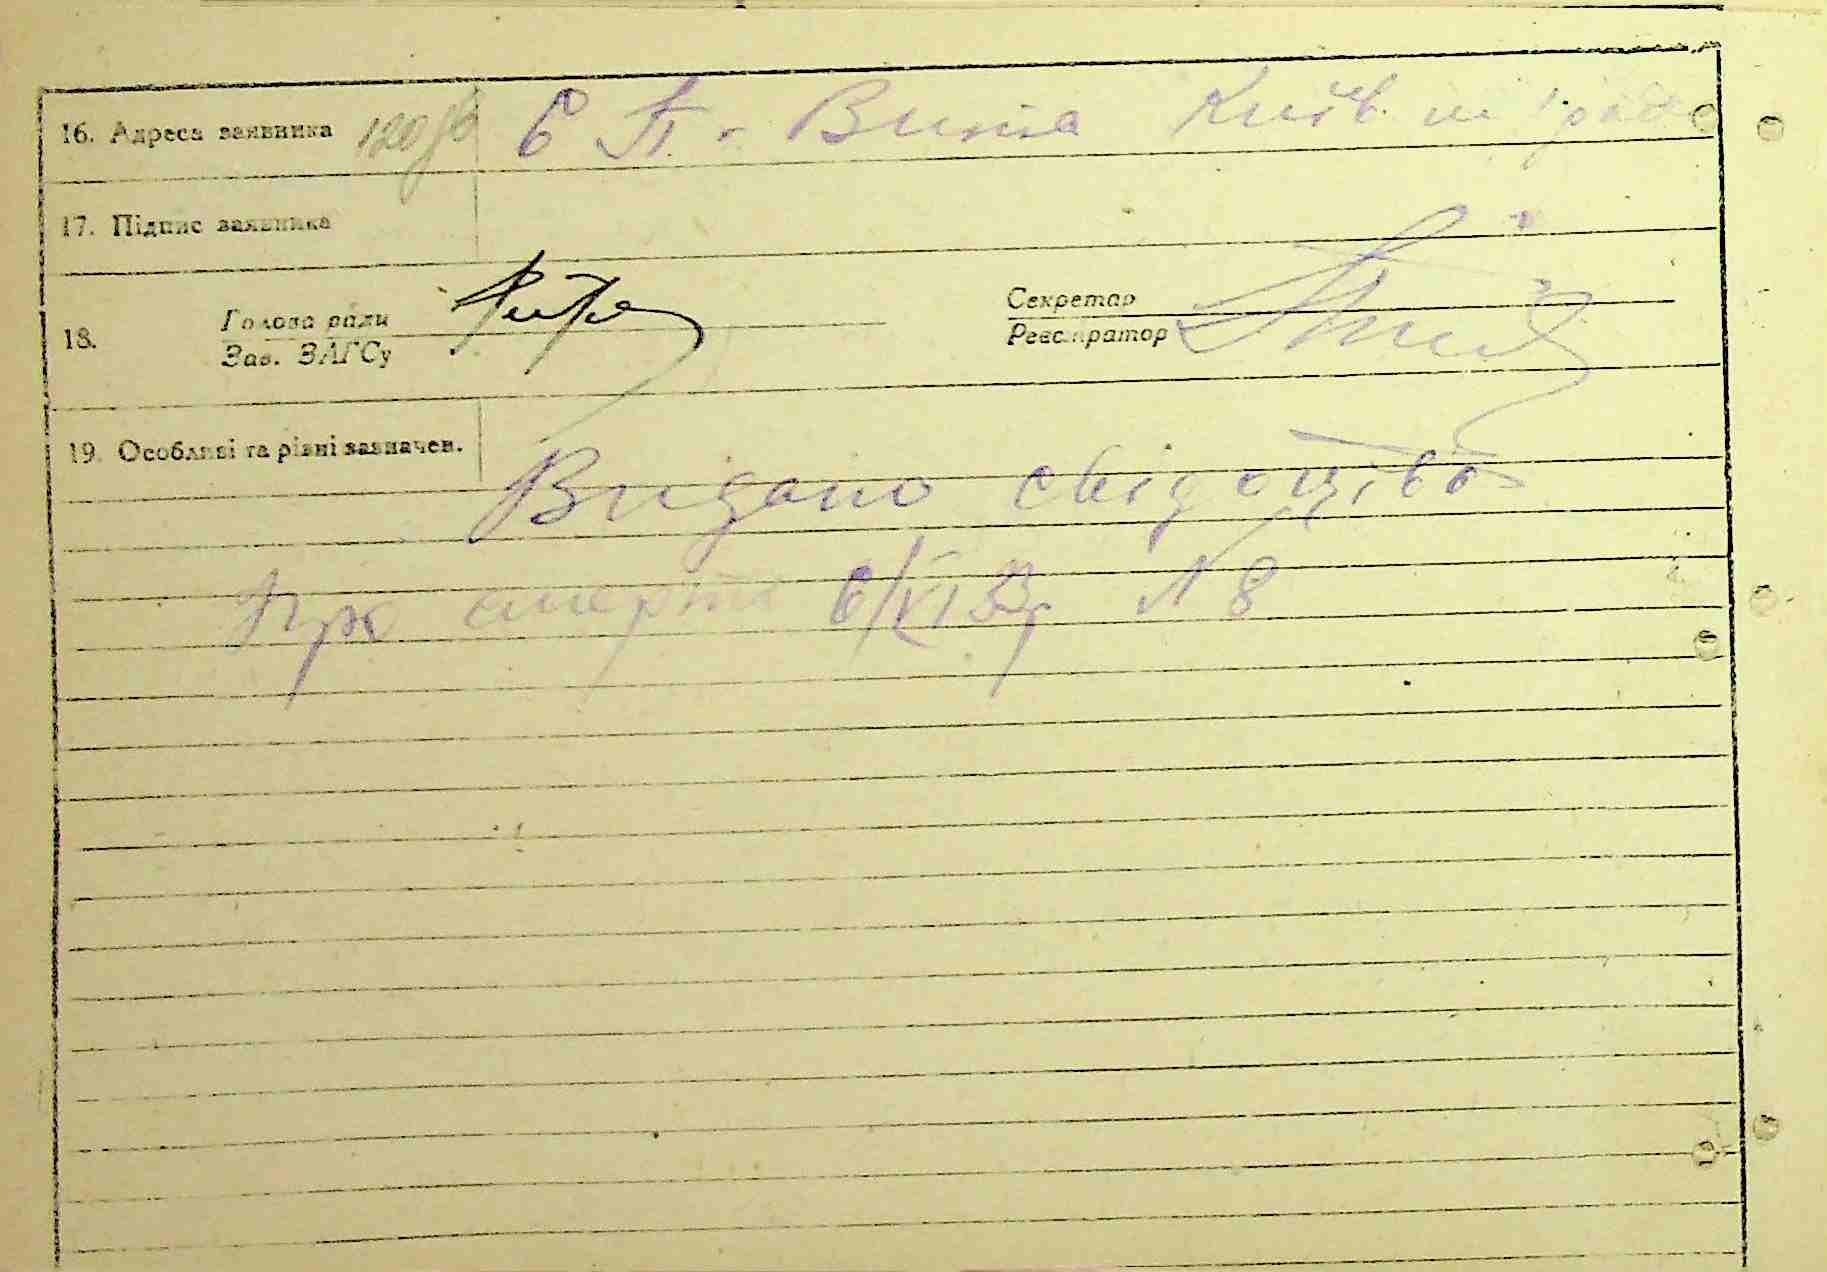 16. Адреса заявника 120 зв С П - Вита Київ. м ради
17. Підпис заявника
18. Голова ради Секретар
Зав. ЗАГСу Реєстратор
19. Особливі та різні зазначен.
Видано свідоцтво
про смерть 6/VI 33р N 8